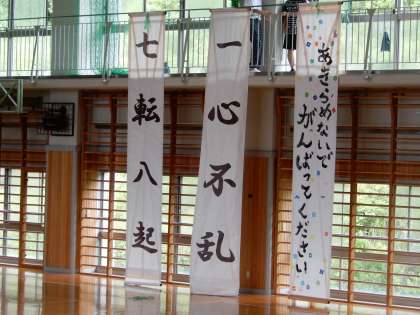 七転八起
一心不乱
あきらめないで
がんばってください